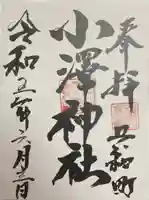 奉拝
五和町
小澤神社
令和五年六月三日